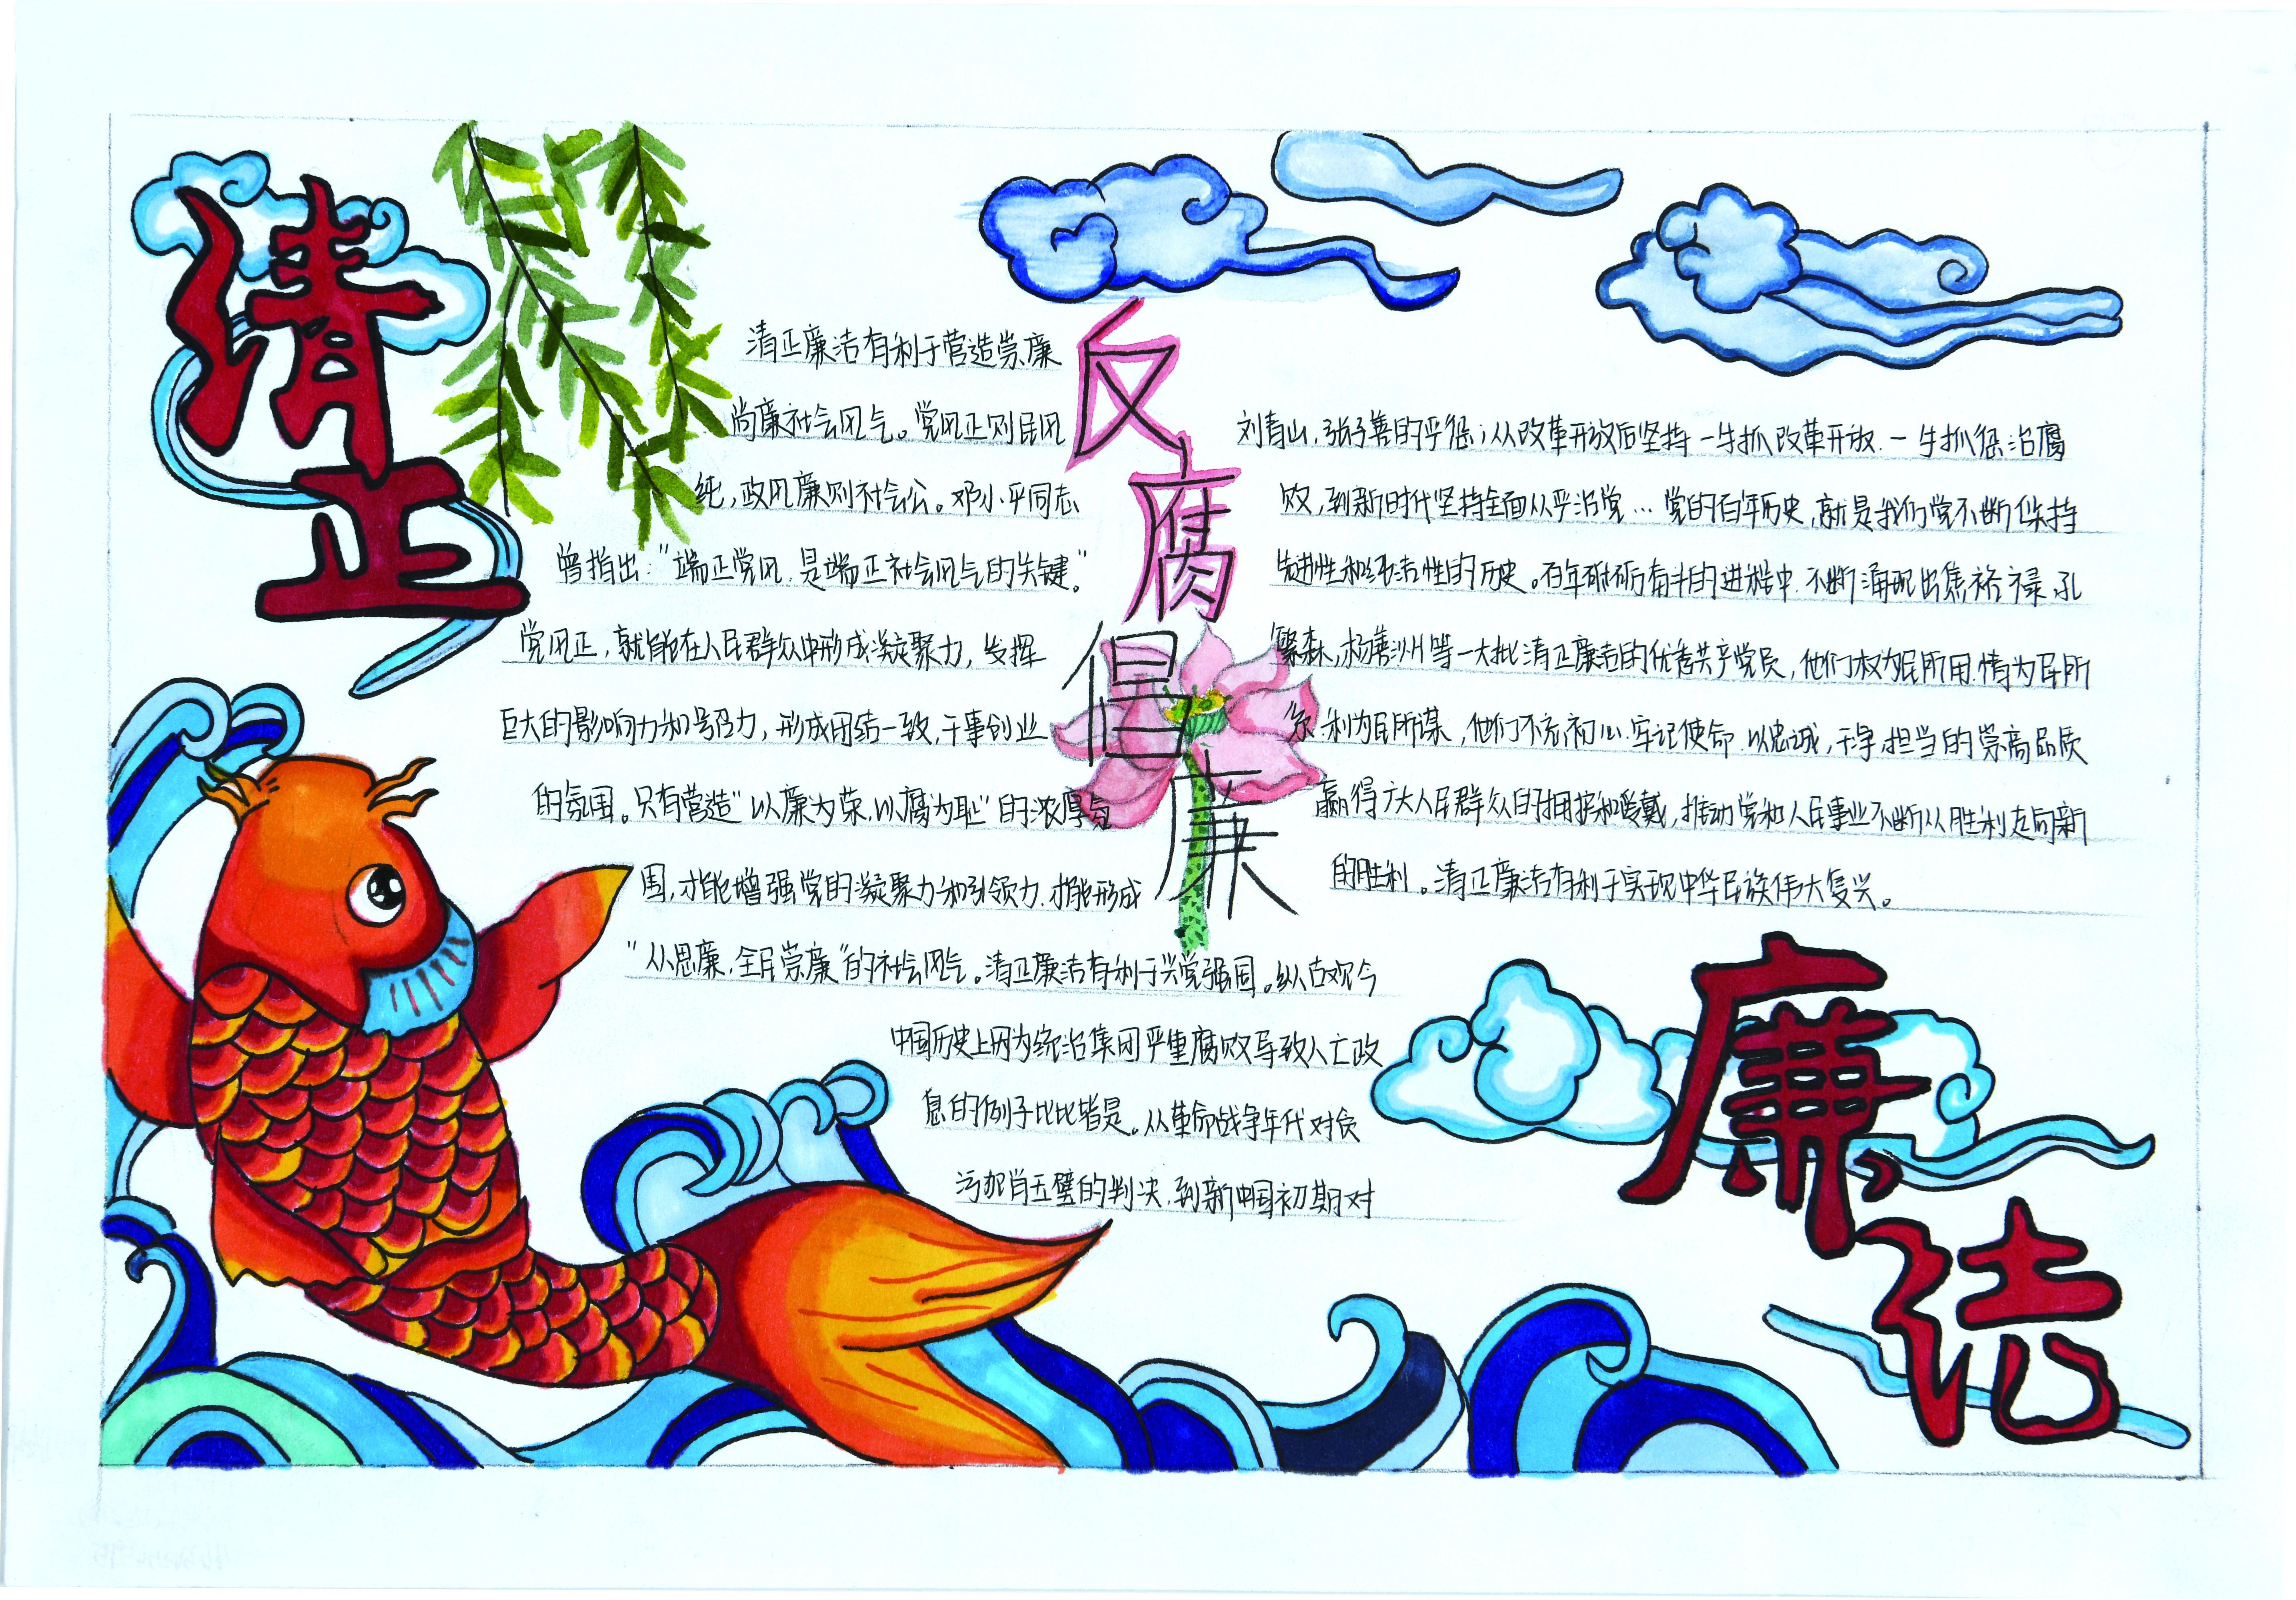 清正
清正廉洁有利于营造崇廉
尚廉社会风气。党风正则民风
纯,政风廉则社会公。邓小平同志
曾指出:"端正党风,是端正社会风气的关键。"
党风正,就能在人民群众中形成凝聚力,发挥
巨大的影响力和号召力,形成团结一致,干事创业
的氛围。只有营造"以廉为荣,以腐为耻"的浓厚氛
围,才能增强党的凝聚力和引领力,才能形成
"人人思廉,全民崇廉"的社会风气。清正廉洁有利于兴党强国。纵古观今
中国历史上因为统治集团严重腐败导致人亡政
息的例子比比皆是。从革命战争年代对贪
污犯肖玉璧的判决,到新中国初期对
反腐倡廉
刘青山,张子善的严惩;从改革开放后坚持一手抓改革开放,一手抓惩治腐
败,到新时代坚持全面从严治党…党的百年历史,就是我们党不断保持
先进性和纯洁性的历史。百年砥砺奋斗的进程中,不断涌现出焦裕禄,孔
繁森,杨善洲等一大批清正廉洁的优秀共产党员,他们权为民所用,情为民所
系,利为民所谋,他们不忘初心,牢记使命,以忠诚,干净,担当的崇高品质
赢得广大人民群众的拥护和爱戴,推动党和人民事业不断从胜利走向新
的胜利。清正廉洁有利于实现中华民族伟大复兴。
廉洁